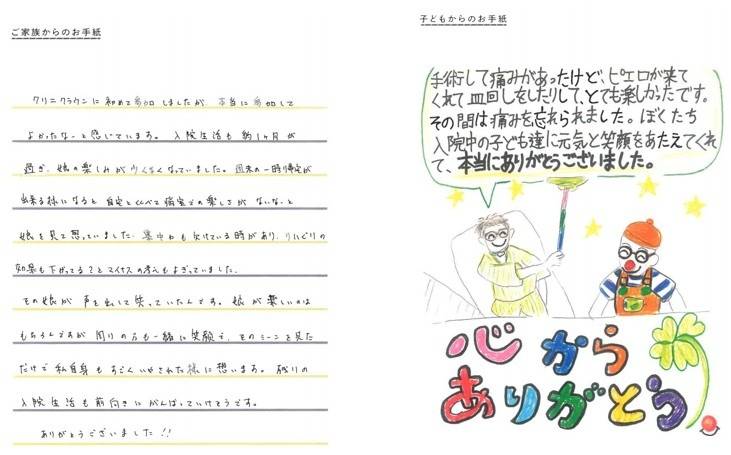 ご家族からのお手紙
クリニクラウンに初めて参加しましたが 本当に参加して
よかったなーと感じています。入院生活も約1ヶ月が
過ぎ、娘の楽しみが少くなくなっていました。週末の一時帰宅が
出来る様になると自宅とくらべて病室での楽しさがないなと
娘を見て思っていました。集中力も欠けている時があり、リハビリの
効果も下がってる？とマイナスの考えもよぎっていました。
その娘が声を出して笑っていたんです。娘が楽しいのは
もちろんですが周りの方も一緒に笑顔で、そのシーンを見た
だけで私自身もすごくいやされた様に想います。残りの
入院生活も前向きにがんばっていけそうです。
ありがとうございました!!
子どもからのお手紙
手術して痛みがあったけど、ピエロが来て
くれて皿回しをしたりして、とても楽しかったです。
その間は痛みを忘れられました。ぼくたち
入院中の子ども達に元気と笑顔をあたえてくれ
て、本当にありがとうございました。
心から
ありがとう